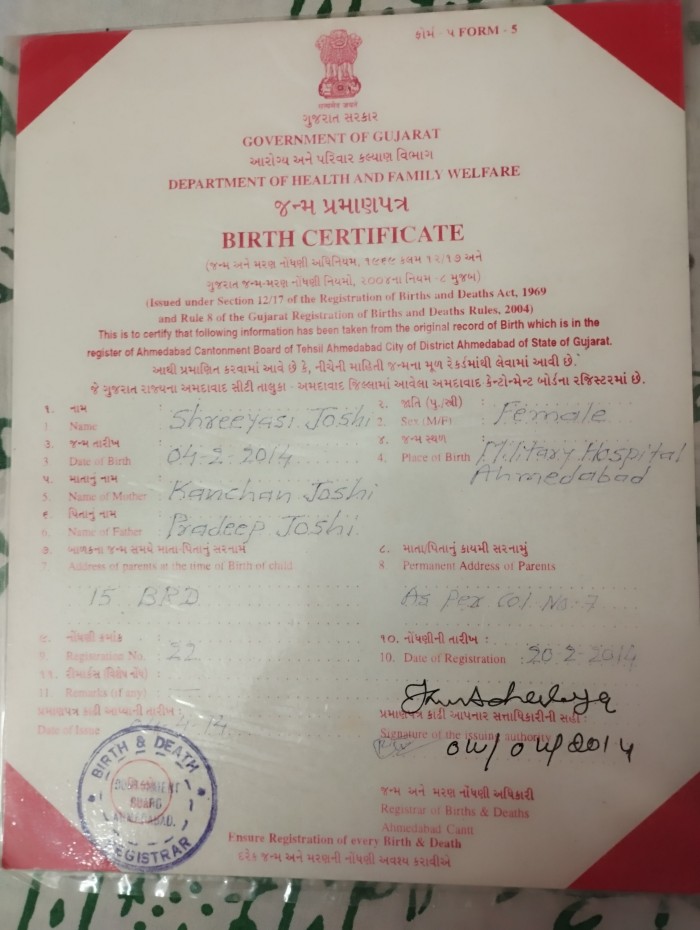 ફોર્મ - ૫ FORM - 5
सत्यमेव जयते
ગુજરાત સરકાર
GOVERNMENT OF GUJARAT
આરોગ્ય અને પરિવાર કલ્યાણ વિભાગ
DEPARTMENT OF HEALTH AND FAMILY WELFARE
જન્મ પ્રમાણપત્ર
BIRTH CERTIFICATE
(જન્મ અને મરણ નોંધણી અધિનિયમ, ૧૯૬૯ કલમ ૧૨/૧૭ અને
ગુજરાત જન્મ-મરણ નોંધણી નિયમો, ૨૦૦૪ના નિયમ - ૮ મુજબ)
(Issued under Section 12/17 of the Registration of Births and Deaths Act, 1969
and Rule 8 of the Gujarat Registration of Births and Deaths Rules, 2004)
This is to certify that following information has been taken from the original record of Birth which is in the
register of Ahmedabad Cantonment Board of Tehsil Ahmedabad City of District Ahmedabad of State of Gujarat.
આથી પ્રમાણિત કરવામાં આવે છે કે, નીચેની માહિતી જન્મના મૂળ રેકર્ડમાંથી લેવામાં આવી છે.
જે ગુજરાત રાજ્યના અમદાવાદ સીટી તાલુકા - અમદાવાદ જિલ્લામાં આવેલા અમદાવાદ કેન્ટોન્મેન્ટ બોર્ડના રજિસ્ટરમાં છે.
૧. નામ ૨. જાતિ (પુ./સ્ત્રી) :
1. Name : Shreeyasi Joshi 2. Sex (M/F) : Female
૩. જન્મ તારીખ ૪. જન્મ સ્થળ
3. Date of Birth : 04-2-2014 4. Place of Birth : Military Hospital
Ahmedabad
૫. માતાનું નામ
5. Name of Mother : Kanchan Joshi
૬. પિતાનું નામ
6. Name of Father : Pradeep Joshi
૭. બાળકના જન્મ સમયે માતા-પિતાનું સરનામું ૮. માતા/પિતાનું કાયમી સરનામું
7. Address of parents at the time of Birth of child. 8. Permanent Address of Parents
15 BRD As per col No-7
૯. નોંધણી ક્રમાંક : ૧૦. નોંધણીની તારીખ :
9. Registration No. 22 10. Date of Registration : 20-2-2014
૧૧. રીમાર્કસ (વિશેષ નોંધ)
11. Remarks (if any) : —
પ્રમાણપત્ર કાઢી આપ્યાની તારીખ : પ્રમાણપત્ર કાઢી આપનાર સત્તાધિકારીની સહી :
Date of Issue Signature of the issuing authority
04/04/2014
BIRTH & DEATH
BOARD
AHMEDABAD.
REGISTRAR
જન્મ અને મરણ નોંધણી અધિકારી
Registrar of Births & Deaths
Ahmedabad Cantt
Ensure Registration of every Birth & Death
દરેક જન્મ અને મરણની નોંધણી અવશ્ય કરાવીએ